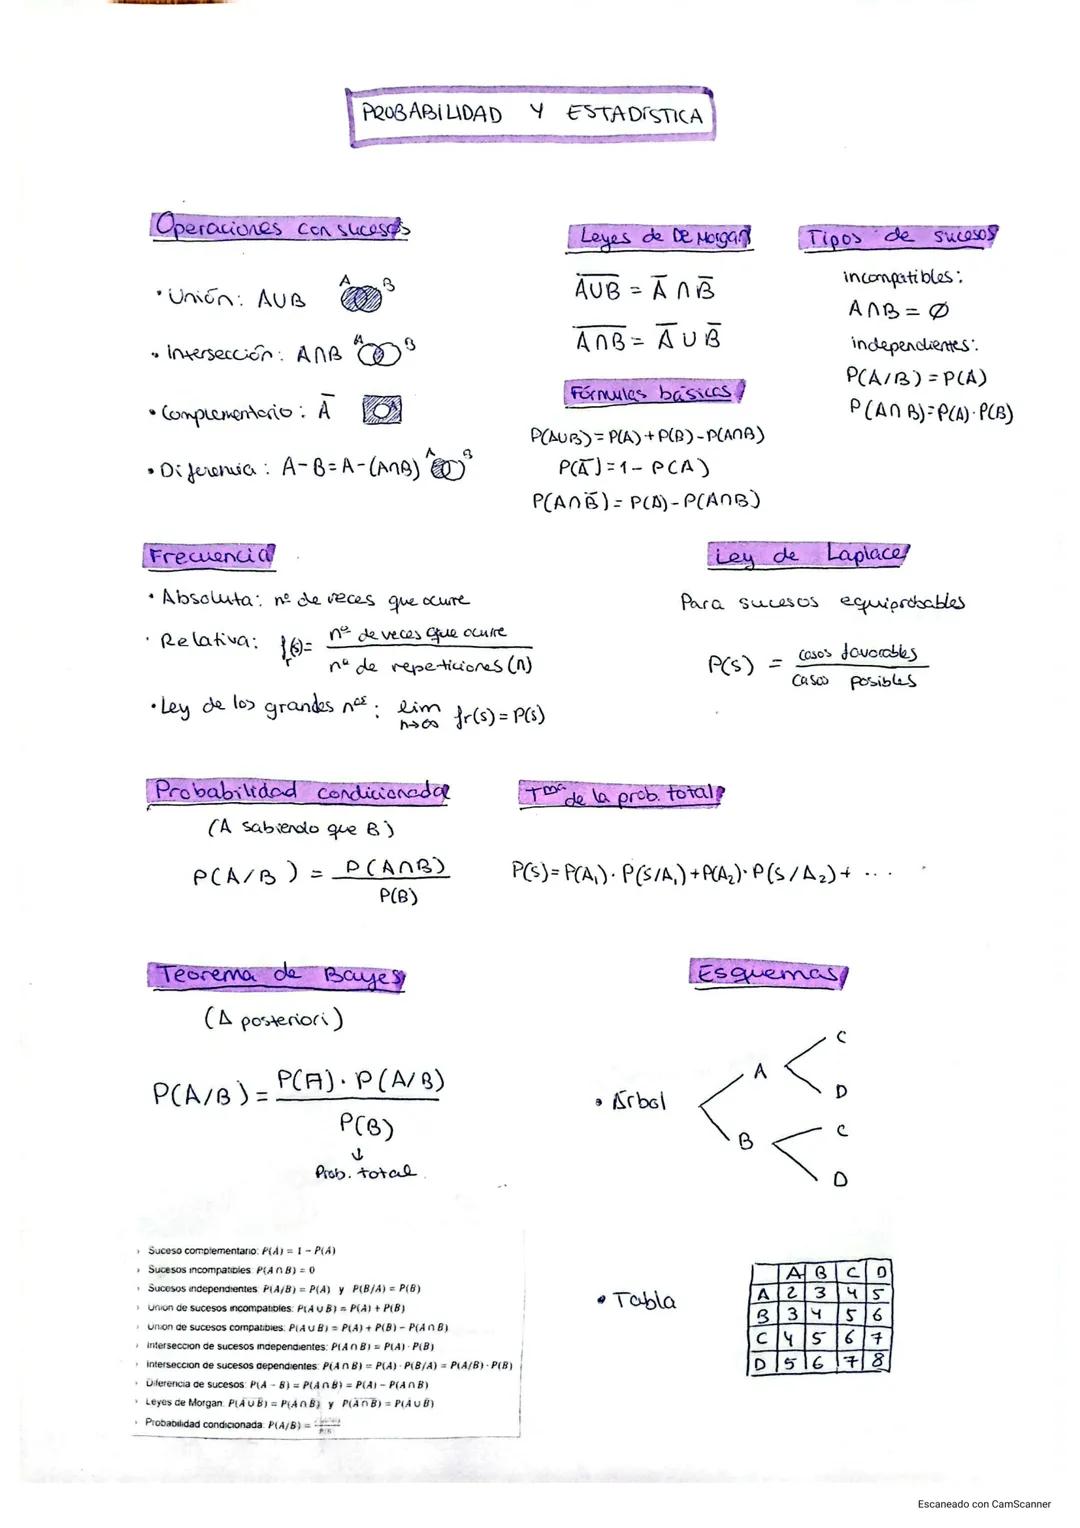 PROBABILIDAD Y ESTADÍSTICA
Operaciones con sucesos
• Unión: A∪B A B
• Intersección: A∩B A B
• Complementario: A̅ A
• Diferencia: A-B=A-(A∩B) A B
Leyes de DE Morgan
A̅∪̅B̅ = A̅ ∩ B̅
A̅∩̅B̅ = A̅ ∪ B̅
Fórmulas básicas
P(A∪B)=P(A)+P(B)-P(A∩B)
P(A̅)=1-P(A)
P(A∩B̅)=P(A)-P(A∩B)
Tipos de sucesos
incompatibles:
A∩B=∅
independientes:
P(A/B)=P(A)
P(A∩B)=P(A)·P(B)
Frecuencia
• Absoluta: nº de veces que ocurre
• Relativa: fr(s)= nº de veces que ocurre
nº de repeticiones (n)
• Ley de los grandes nºs: lim n→∞ fr(s)=P(s)
Ley de Laplace
Para sucesos equiprobables
P(s) = casos favorables
casos posibles
Probabilidad condicionada
(A sabiendo que B)
P(A/B) = P(A∩B)
P(B)
Tma de la prob. total
P(s)=P(A₁)·P(S/A₁)+P(A₂)·P(S/A₂)+ ...
Teorema de Bayes
(A posteriori)
P(A/B)= P(A)·P(A/B)
P(B)
↓
Prob. total
Esquemas
• Árbol
A C
D
B C
D
› Suceso complementario: P(A̅) = 1 − P(A)
› Sucesos incompatibles: P(A∩B) = 0
› Sucesos independientes: P(A/B) = P(A) y P(B/A) = P(B)
› Unión de sucesos incompatibles: P(A∪B) = P(A) + P(B)
› Unión de sucesos compatibles: P(A∪B) = P(A) + P(B) − P(A∩B)
› Intersección de sucesos independientes: P(A∩B) = P(A) · P(B)
› Intersección de sucesos dependientes: P(A∩B) = P(A) · P(B/A) = P(A/B) · P(B)
› Diferencia de sucesos: P(A − B) = P(A∩B̅) = P(A) − P(A∩B)
› Leyes de Morgan: P(A̅∪̅B̅) = P(A̅∩B̅) y P(A̅∩̅B̅) = P(A̅∪B̅)
› Probabilidad condicionada: P(A/B) =
• Tabla
A B C D
A 2 3 4 5
B 3 4 5 6
C 4 5 6 7
D 5 6 7 8
Escaneado con CamScanner